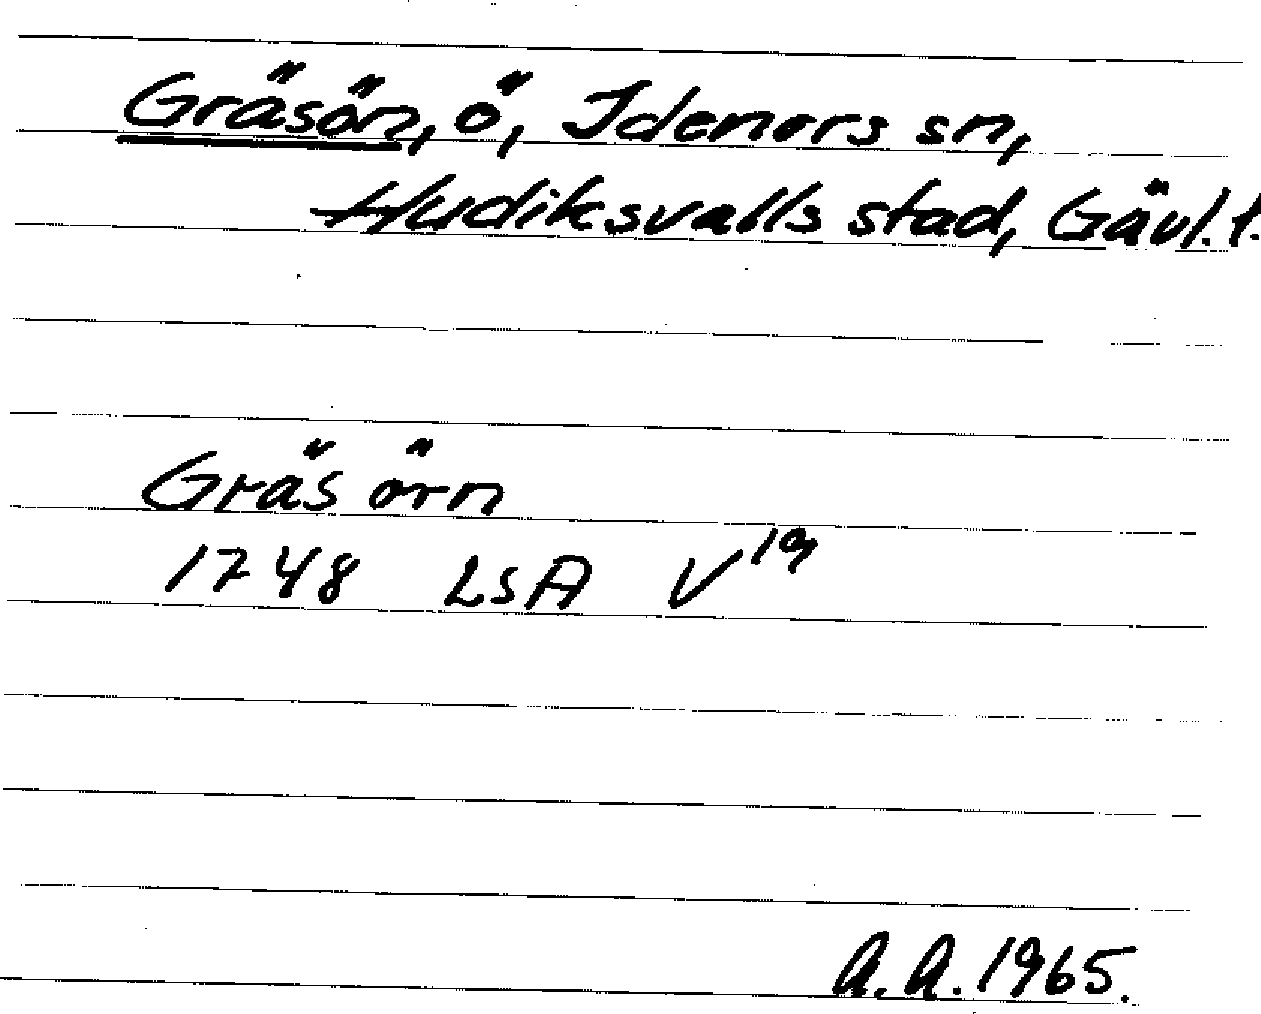 Gräsön, ö, Idenors sn,
Hudiksvalls stad, Gävl.l.
Gräs örn
1748 LSA V 19
A.A. 1965.